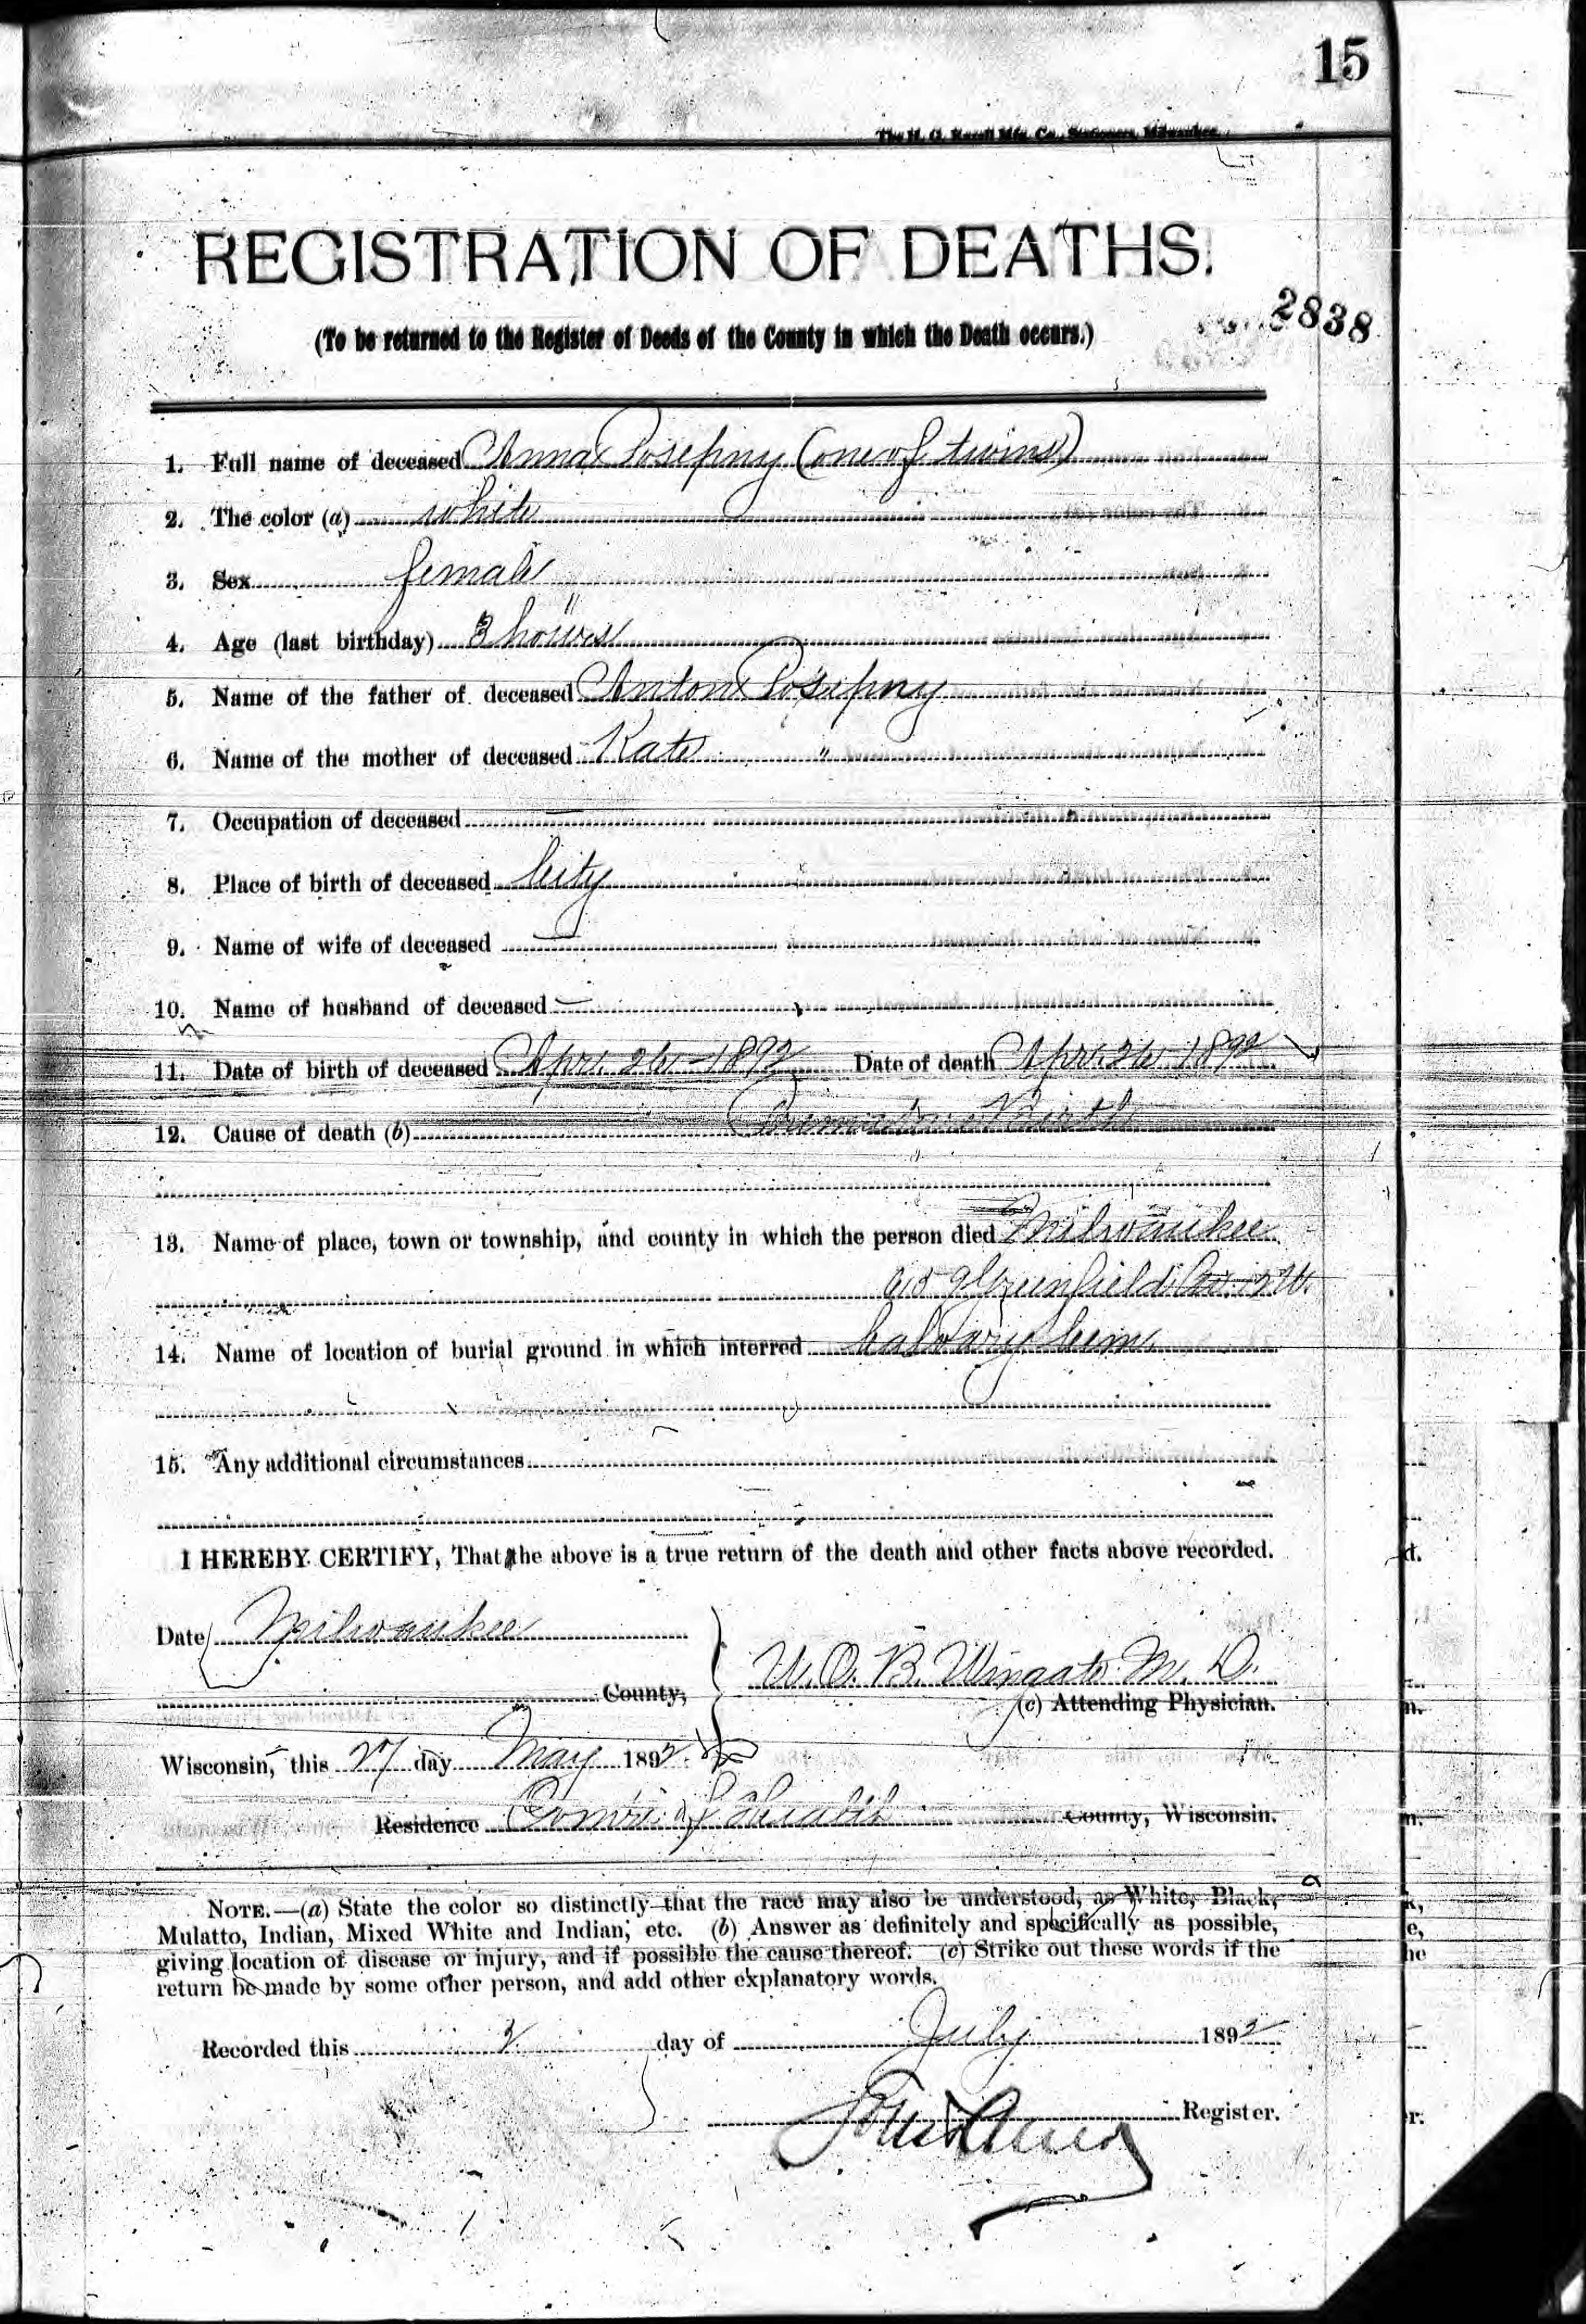 15
The H. G. Razall Mfg. Co., Stationers, Milwaukee.
REGISTRATION OF DEATHS.
(To be returned to the Register of Deeds of the County in which the Death occurs.)
2838
1. Full name of deceased Anna Posepny (one of twins)
2. The color (a) white
3. Sex female
4. Age (last birthday) 3 hours
5. Name of the father of deceased Anton Posepny
6. Name of the mother of deceased Kate "
7. Occupation of deceased —
8. Place of birth of deceased City
9. Name of wife of deceased —
10. Name of husband of deceased —
11. Date of birth of deceased Apr. 26 - 1892 Date of death Apr. 26 1892
12. Cause of death (b) Premature Birth
13. Name of place, town or township, and county in which the person died Milwaukee
Greenfield Av.
14. Name of location of burial ground in which interred Calvary Cem.
15. Any additional circumstances
I HEREBY CERTIFY, That the above is a true return of the death and other facts above recorded.
Date Milwaukee
County,
W. O. B. Wingate M. D.
(c) Attending Physician.
Wisconsin, this 27 day May 1892.
Residence Comr. of Health County, Wisconsin.
NOTE.—(a) State the color so distinctly that the race may also be understood, as White, Black,
Mulatto, Indian, Mixed White and Indian, etc. (b) Answer as definitely and specifically as possible,
giving location of disease or injury, and if possible the cause thereof. (c) Strike out these words if the
return be made by some other person, and add other explanatory words.
Recorded this 2 day of July 1892
Register.